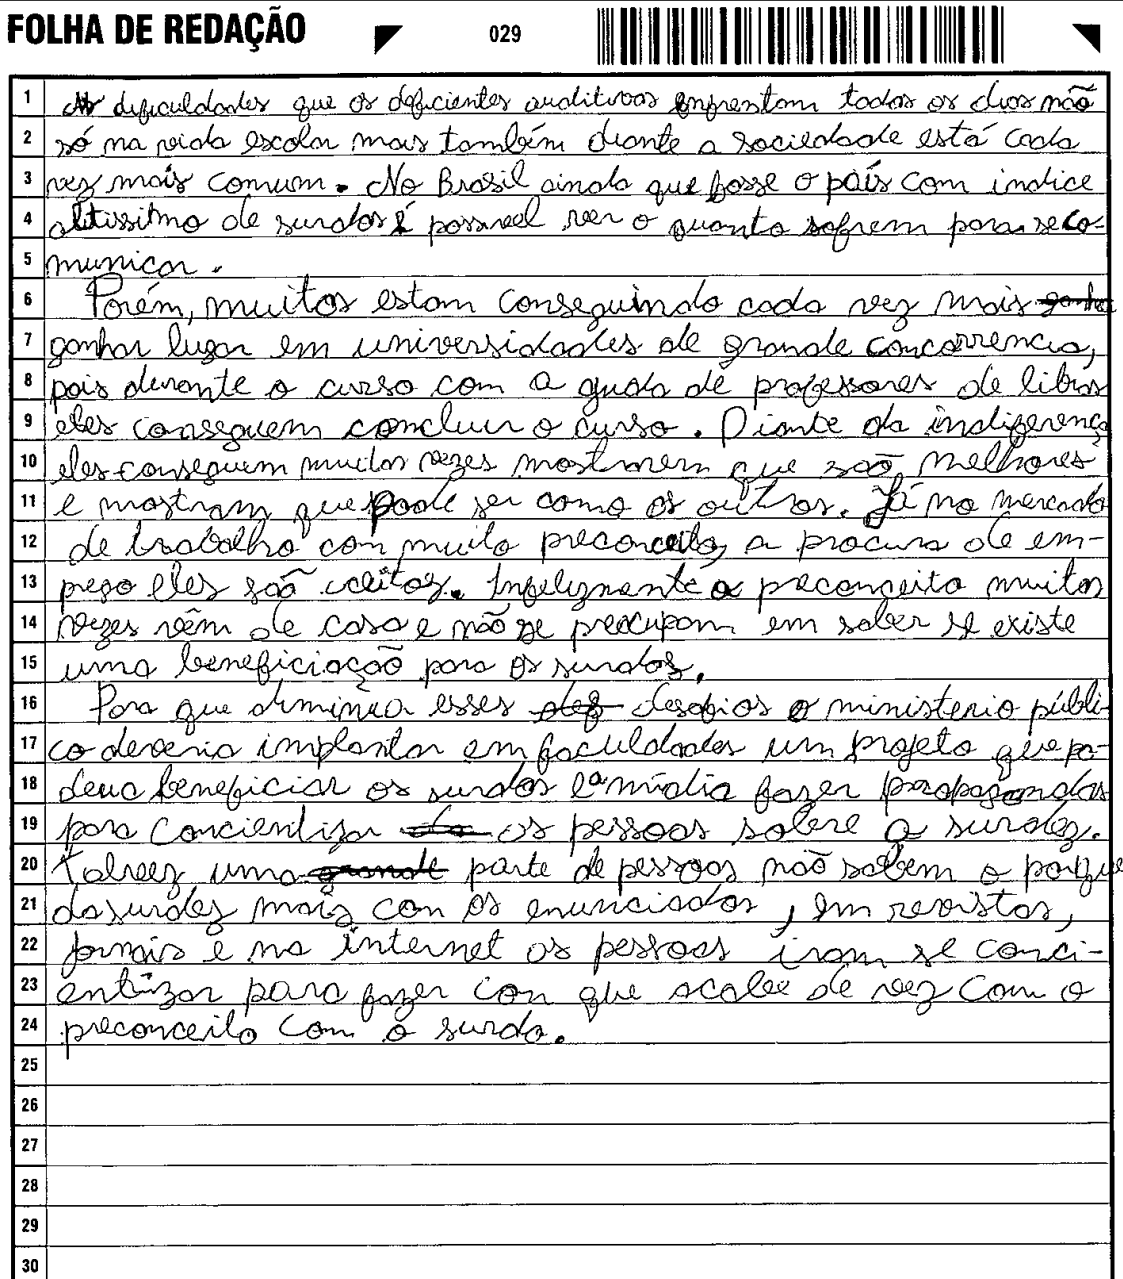 FOLHA DE REDAÇÃO 029
1 As dificuldades que os deficientes auditivos enfrentam todos os dias não
2 só na vida escolar mais também diante a sociedade está cada
3 vez mais comum. No Brasil ainda que fosse o país com indice
4 altissitmo de surdos é possivel ver o quanto sofrem para se co-
5 municar.
6 Porém, muitos estam conseguindo cada vez mais ganha
7 ganhar lugar em universidades de grande concorrencia,
8 pois durante o curso com a guda de professores de libras
9 eles conseguem concluir o curso. Diante da indiferença
10 eles conseguem muitas vezes mostrarem que são melhores
11 e mostram que pode ser como os outros. Já no mercado
12 de trabalho com muito preconceito, a procura de em-
13 prego eles são aceitos. Infelizmente o preconceito muitas
14 vezes vêm de casa e não se preocupam em saber se existe
15 uma beneficiação para os surdos.
16 Para que diminua esses des desafios o ministerio públi-
17 co deveria implantar em faculdades um projeto que po-
18 deria beneficiar os surdos e a midia fazer propagandas
19 para concientizar os pessoas sobre a surdez.
20 Talvez uma grande parte de pessoas não sabem o porque
21 da surdez mais con os enunciados, em revistas,
22 jornais e na internet as pessoas iram se conci-
23 entizar para fazer con que acabe de vez com o
24 preconceito com o surdo.
25
26
27
28
29
30